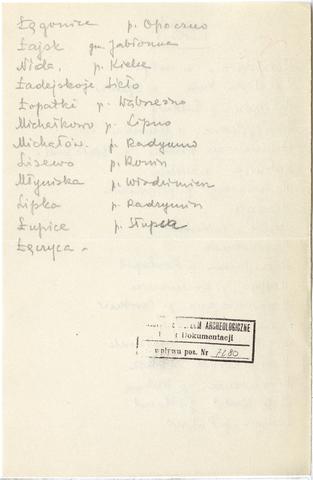 Łęgonice p. Opoczno
Łajsk gm. Jabłonna
Nida, p. Kielce
Ładejskoje Sieło
Łopatki p. Wąbrzeźno
Michałkowo p. Lipno
Michałów. p. Radzymin
Lisewo p. Konin
Młyniska p. 
Lipka p. Radzymin
Łupice p. Słupca
Łęczyca
ARCHEOLOGICZNE
Dokumentacji
wpływu poz. Nr 7680